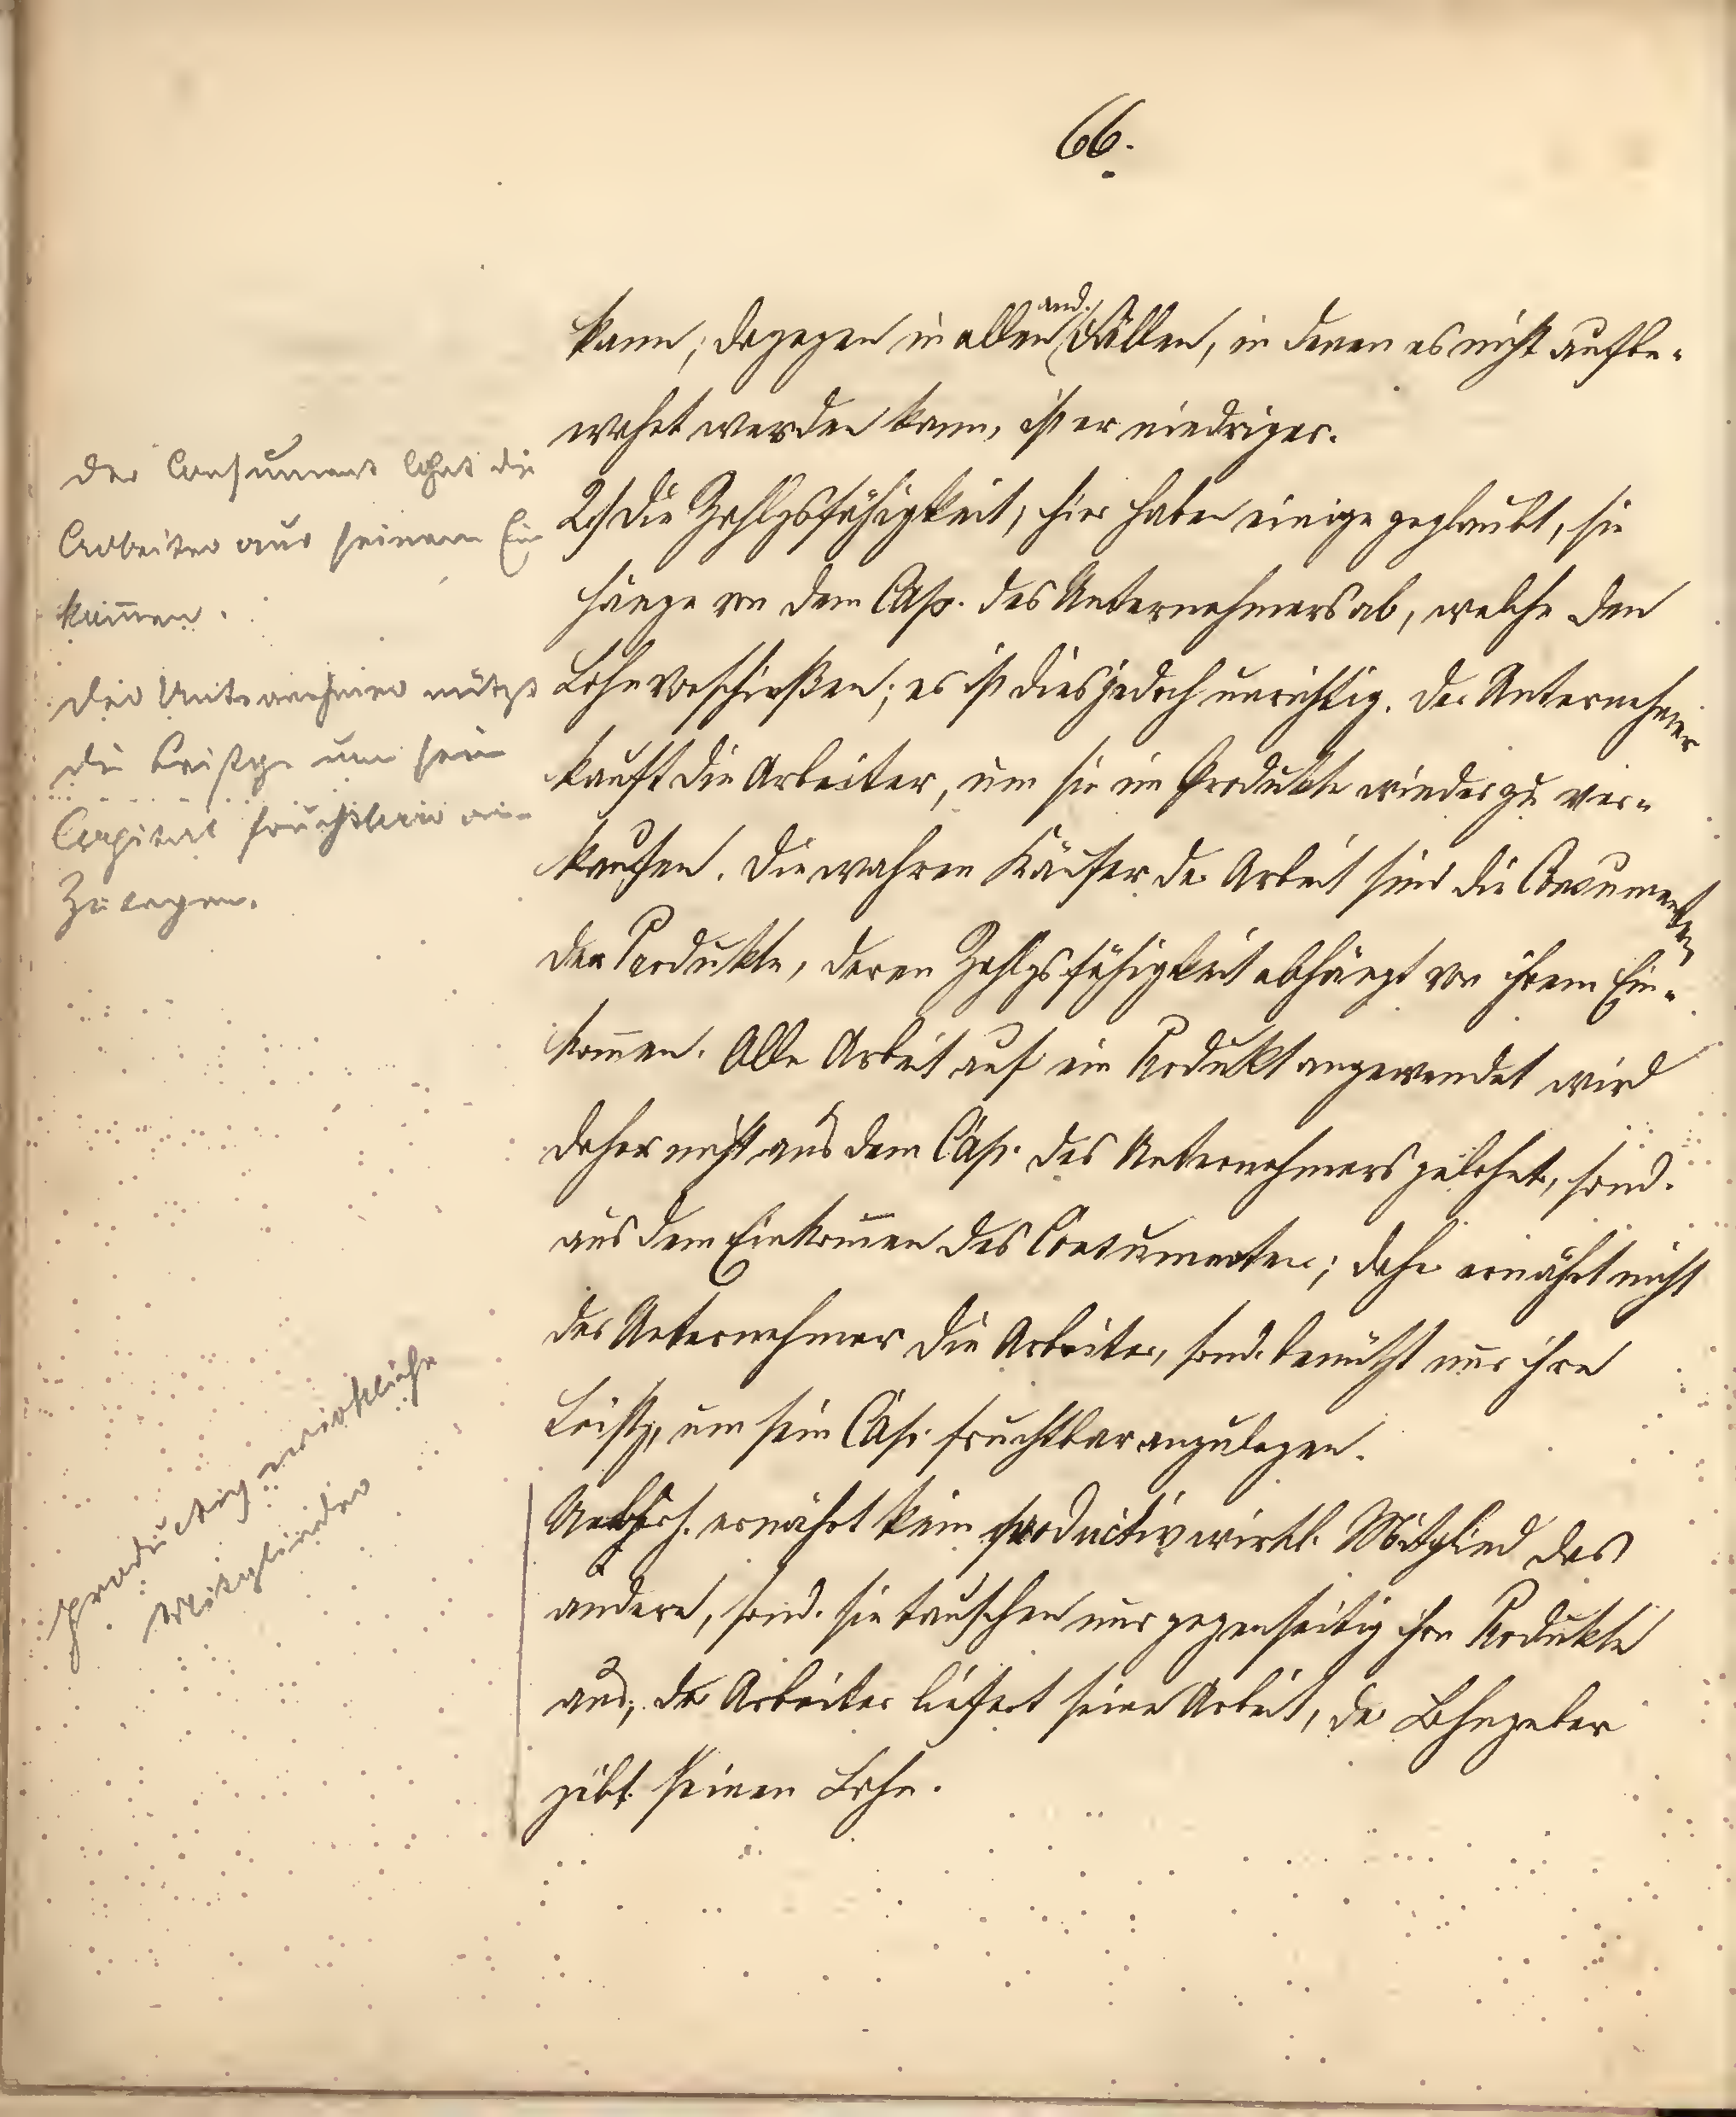 66.
kann; dagegen in allen and. Fällen, in denen es nicht aufbe-
wahrt werden kann, ist er niedriger.
2.) Die Zahlgsfähigkeit; hier haben einige geglaubt, sie
hänge von dem Cap. des Unternehmers ab, welche den
Lohn vorschießen; es ist dies jedoch unrichtig. Der Unternehmer
kauft die Arbeiter, um sie im Produkte wieder zu ver-
kaufen. Die wahren Käufer der Arbeit sind die Consumenten
der Produkte, deren Zahlgsfähigkeit abhängt von ihrem Ein-
kom̄en. Alle Arbeit auf ein Produkt angewendet wird
daher nicht aus dem Cap. des Unternehmers gelohnt, sond.
aus dem Einkom̄en des Consumenten; daher ernährt nicht
der Unternehmer die Arbeiter, sond. benützt nur ihre
Leistg, um sein Cap. fruchtbar anzulegen.
ernährt kein productiv wirkl. Mitglied das
andere, sond. sie tauschen nur gegenseitig ihre Produkte
aus; der Arbeiter liefert seine Arbeit, der Lohngeber
gibt seinen Lohn.
Der Consument lohnt die
Arbeiter aus seinem Ein
kom̄en.
Der Unternehmer nützt
die Leistg. um sein
Capital fruchtbar an-
zulegen.
productiv wirkliche
Mitglieder